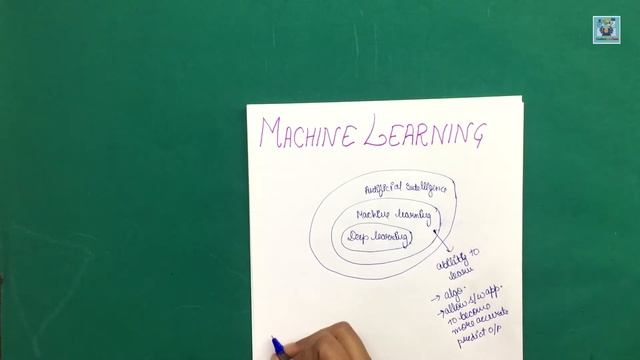 MACHINE LEARNING
Artificial Intelligence
Machine learning
Deep learning
ability to
learn
→ algo.
→ allow s/w app.
to become
more accurate
predict o/p